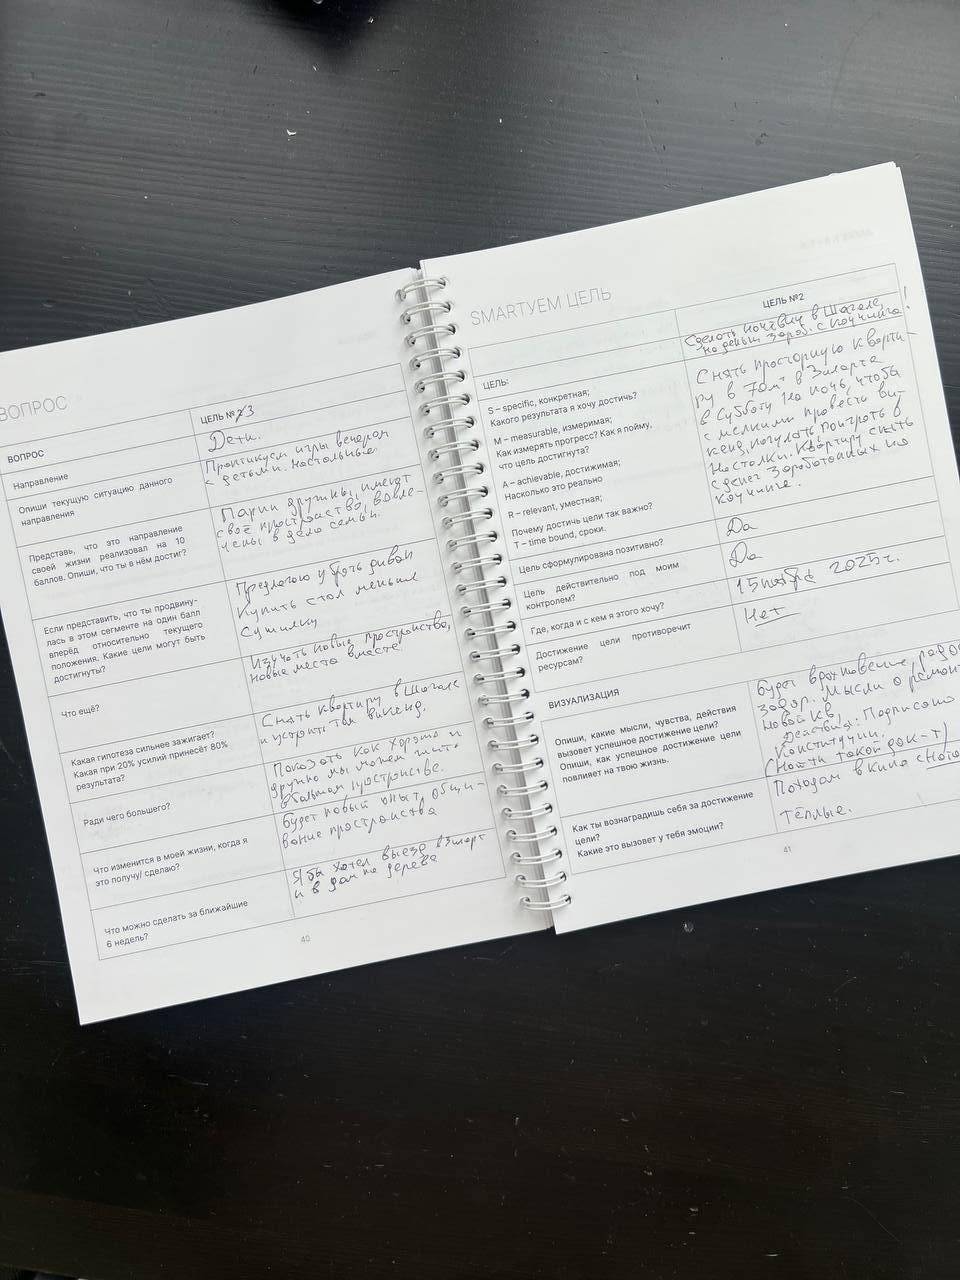 ВОПРОС
ВОПРОС
ЦЕЛЬ № 3
Направление
Дети.
Опиши текущую ситуацию данного
направления
Практикуем игры вечерам
с детьми. Настольные.
Представь, что это направление
своей жизни реализовал на 10
баллов. Опиши, что ты в нём достиг?
Парни дружны, имеют
своё пространство, вовле-
чены в дела семьи.
Если представить, что ты продвину-
лась в этом сегменте на один балл
вперёд относительно текущего
положения. Какие цели могут быть
достигнуты?
Предлагаю убрать диван
Купить стол меньше
Сушилку
Что ещё?
Изучать новые пространства,
новые места вместе.
Какая гипотеза сильнее зажигает?
Какая при 20% усилий принесёт 80%
результата?
Снять квартиру в Шагале
и устроить там викенд.
Ради чего большего?
Показать как хорошо и
дружно мы можем жить
в большом пространстве.
Что изменится в моей жизни, когда я
это получу/ сделаю?
Будет новый опыт,
пространства
Что можно сделать за ближайшие
6 недель?
Я бы хотел выезд в
и в дом на дерева
40
SMARTУЕМ ЦЕЛЬ
ЦЕЛЬ №2
ЦЕЛЬ:
Сделать ночёвку в Шагале
на деньги зараб. с коучинга!
S – specific, конкретная;
Какого результата я хочу достичь?
M – measurable, измеримая;
Как измерять прогресс? Как я пойму,
что цель достигнута?
A – achievable, достижимая;
Насколько это реально
R – relevant, уместная;
Почему достичь цели так важно?
T – time bound, сроки.
Снять просторную кварти-
ру в 70м² в
в субботу на ночь, чтобы
с мелкими провести вик
кенд, погулять, поиграть в
настолки. Квартиру снять
с денег заработанных на
коучинге.
Цель сформулирована позитивно?
Да
Цель действительно под моим
контролем?
Да
Где, когда и с кем я этого хочу?
15 ноября 2025 г.
Достижение цели противоречит
ресурсам?
Нет
ВИЗУАЛИЗАЦИЯ
Опиши, какие мысли, чувства, действия
вызовет успешное достижение цели?
Опиши, как успешное достижение цели
повлияет на твою жизнь.
Будет вдохновение,
задор. Мысли о
новой кв.
Действия: Подписано
Конституции.
(Найти такой док-т)
Как ты вознаградишь себя за достижение
цели?
Какие это вызовет у тебя эмоции?
Походом в кино с
Тёплые.
41